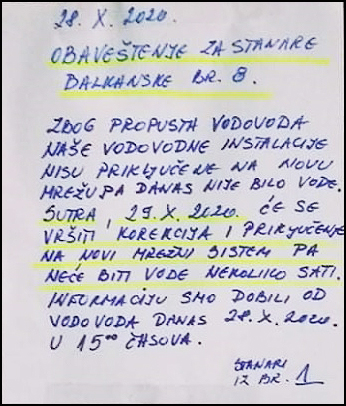 28. X. 2020.
OBAVEŠTENJE ZA STANARE
BALKANSKE BR. 8.
ZBOG PROPUSTA VODOVODA
NAŠE VODOVODNE INSTALACIJE
NISU PRIKLJUČENE NA NOVU
MREŽU PA DANAS NIJE BILO VODE.
SUTRA, 29. X. 2020. ĆE SE
VRŠITI KOREKCIJA I PRIKLJUČENJE
NA NOVI MREŽNI SISTEM PA
NEĆE BITI VODE NEKOLIKO SATI.
INFORMACIJU SMO DOBILI OD
VODOVODA DANAS 28. X. 2020.
U 15⁰⁰ ČASOVA.
STANARI
IZ BR. 1